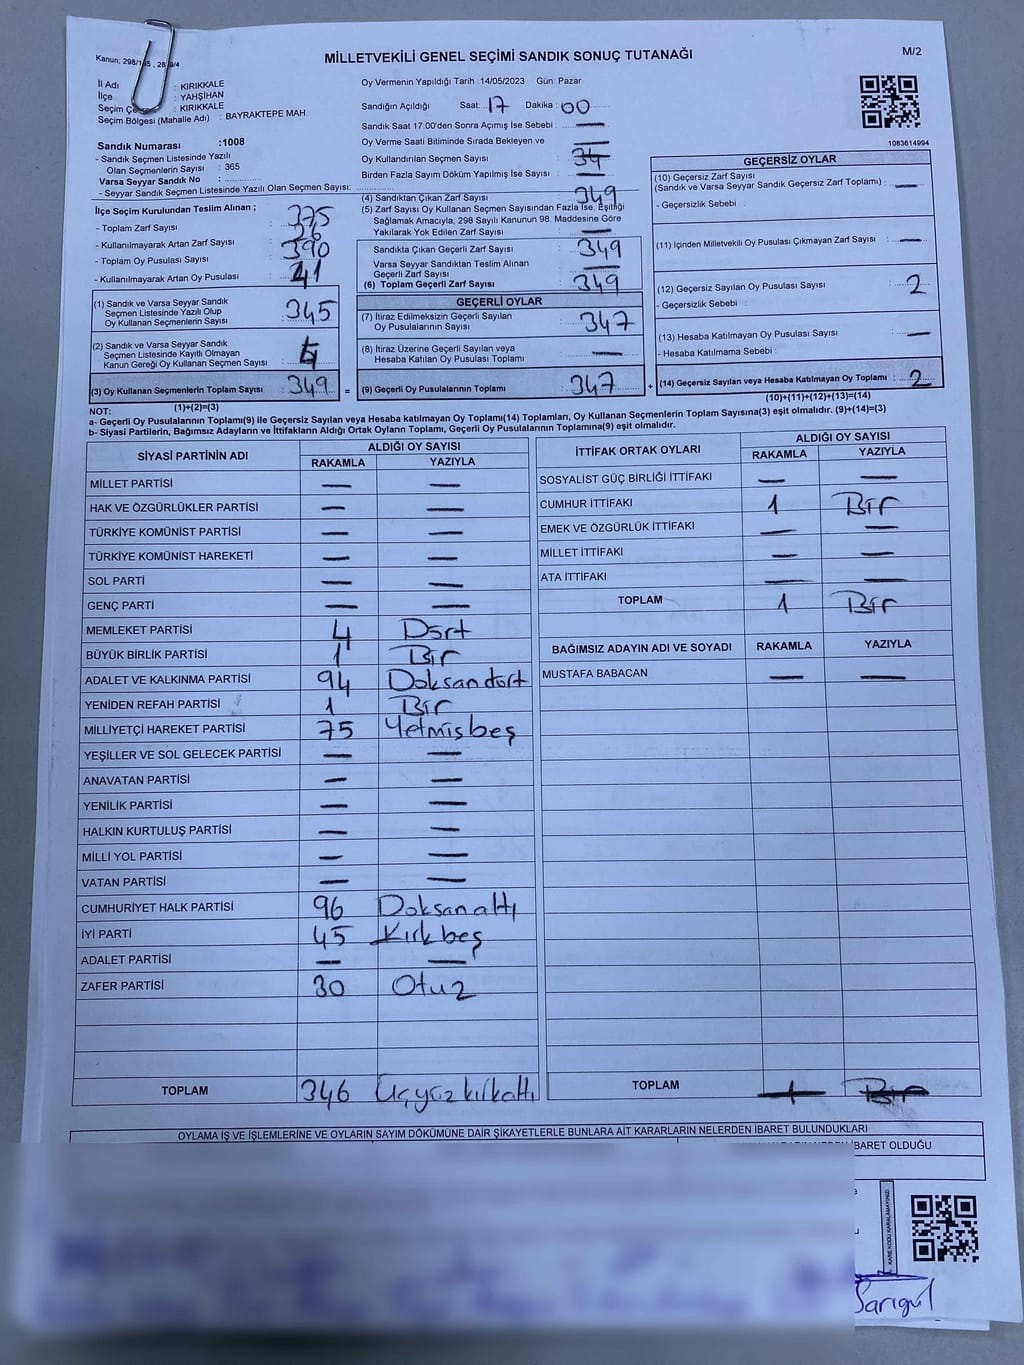 Kanun; 298/105, 28 9/4
MİLLETVEKİLİ GENEL SEÇİMİ SANDIK SONUÇ TUTANAĞI
M/2
İl Adı : KIRIKKALE
İlçe : YAHŞİHAN
Seçim Çe : KIRIKKALE
Seçim Bölgesi (Mahalle Adı) : BAYRAKTEPE MAH
Oy Vermenin Yapıldığı Tarih : 14/05/2023 Gün: Pazar
Sandığın Açıldığı Saat: 17 Dakika : 00
Sandık Saat 17:00'den Sonra Açımış İse Sebebi : —
Oy Verme Saati Bitiminde Sırada Bekleyen ve
Oy Kullandırılan Seçmen Sayısı : 34
Birden Fazla Sayım Döküm Yapılmış İse Sayısı : —
1083614994
Sandık Numarası :1008
- Sandık Seçmen Listesinde Yazılı
Olan Seçmenlerin Sayısı : 365
Varsa Seyyar Sandık No :
- Seyyar Sandık Seçmen Listesinde Yazılı Olan Seçmen Sayısı:
İlçe Seçim Kurulundan Teslim Alınan ;
- Toplam Zarf Sayısı : 375
- Kullanılmayarak Artan Zarf Sayısı : 26
- Toplam Oy Pusulası Sayısı : 390
- Kullanılmayarak Artan Oy Pusulası : 41
(1) Sandık ve Varsa Seyyar Sandık
Seçmen Listesinde Yazılı Olup
Oy Kullanan Seçmenlerin Sayısı : 345
(2) Sandık ve Varsa Seyyar Sandık
Seçmen Listesinde Kayıtlı Olmayan
Kanun Gereği Oy Kullanan Seçmen Sayısı :
(3) Oy Kullanan Seçmenlerin Toplam Sayısı : 349 =
(1)+(2)=(3)
(4) Sandıktan Çıkan Zarf Sayısı : 349
(5) Zarf Sayısı Oy Kullanan Seçmen Sayısından Fazla İse, Eşitliği
Sağlamak Amacıyla, 298 Sayılı Kanunun 98. Maddesine Göre
Yakılarak Yok Edilen Zarf Sayısı : —
Sandıkta Çıkan Geçerli Zarf Sayısı : 349
Varsa Seyyar Sandıktan Teslim Alınan
Geçerli Zarf Sayısı : —
(6) Toplam Geçerli Zarf Sayısı : 349
GEÇERLİ OYLAR
(7) İtiraz Edilmeksizin Geçerli Sayılan
Oy Pusulalarının Sayısı : 347
(8) İtiraz Üzerine Geçerli Sayılan veya
Hesaba Katılan Oy Pusulası Toplamı : —
(9) Geçerli Oy Pusulalarının Toplamı : 347 +
GEÇERSİZ OYLAR
(10) Geçersiz Zarf Sayısı
(Sandık ve Varsa Seyyar Sandık Geçersiz Zarf Toplamı) : —
- Geçersizlik Sebebi :
(11) İçinden Milletvekili Oy Pusulası Çıkmayan Zarf Sayısı : —
(12) Geçersiz Sayılan Oy Pusulası Sayısı : 2
- Geçersizlik Sebebi :
(13) Hesaba Katılmayan Oy Pusulası Sayısı : —
- Hesaba Katılmama Sebebi :
(14) Geçersiz Sayılan veya Hesaba Katılmayan Oy Pusulası Toplamı : 2
(10)+(11)+(12)+(13)=(14)
NOT:
a- Geçerli Oy Pusulalarının Toplamı(9) ile Geçersiz Sayılan veya Hesaba katılmayan Oy Toplamı(14) Toplamları, Oy Kullanan Seçmenlerin Toplam Sayısına(3) eşit olmalıdır. (9)+(14)=(3)
b- Siyasi Partilerin, Bağımsız Adayların ve İttifakların Aldığı Ortak Oyların Toplamı, Geçerli Oy Pusulalarının Toplamına(9) eşit olmalıdır.
SİYASİ PARTİNİN ADI ALDIĞI OY SAYISI
RAKAMLA YAZIYLA
MİLLET PARTİSİ — —
HAK VE ÖZGÜRLÜKLER PARTİSİ — —
TÜRKİYE KOMÜNİST PARTİSİ — —
TÜRKİYE KOMÜNİST HAREKETİ — —
SOL PARTİ — —
GENÇ PARTİ — —
MEMLEKET PARTİSİ 4 Dört
BÜYÜK BİRLİK PARTİSİ 1 Bir
ADALET VE KALKINMA PARTİSİ 94 Doksandört
YENİDEN REFAH PARTİSİ 1 Bir
MİLLİYETÇİ HAREKET PARTİSİ 75 Yetmişbeş
YEŞİLLER VE SOL GELECEK PARTİSİ — —
ANAVATAN PARTİSİ — —
YENİLİK PARTİSİ — —
HALKIN KURTULUŞ PARTİSİ — —
MİLLİ YOL PARTİSİ — —
VATAN PARTİSİ — —
CUMHURİYET HALK PARTİSİ 96 Doksanaltı
İYİ PARTİ 45 Kırkbeş
ADALET PARTİSİ — —
ZAFER PARTİSİ 30 Otuz
TOPLAM 346 Üçyüzkırkaltı
İTTİFAK ORTAK OYLARI ALDIĞI OY SAYISI
RAKAMLA YAZIYLA
SOSYALİST GÜÇ BİRLİĞİ İTTİFAKI — —
CUMHUR İTTİFAKI 1 Bir
EMEK VE ÖZGÜRLÜK İTTİFAKI — —
MİLLET İTTİFAKI — —
ATA İTTİFAKI — —
TOPLAM 1 Bir
BAĞIMSIZ ADAYIN ADI VE SOYADI RAKAMLA YAZIYLA
MUSTAFA BABACAN — —
TOPLAM 1 Bir
OYLAMA İŞ VE İŞLEMLERİNE VE OYLARIN SAYIM DÖKÜMÜNE DAİR ŞİKAYETLERLE BUNLARA AİT KARARLARIN NELERDEN İBARET BULUNDUKLARI
İBARET OLDUĞU
KARE KODU KARALAMAYINIZ
Sarıgül